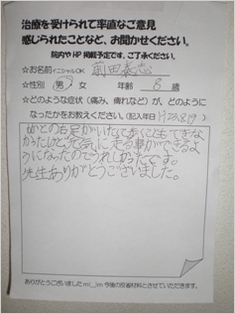 治療を受けられて率直なご意見
感じられたことなど、お聞かせください。
院内や HP 掲載予定です、ご了承ください。
☆お名前イニシャルOK
☆性別 男 女 年齢 8 歳
☆どのような症状（痛み、痺れなど）が、どのように
なったかをお教えください。（記入日 H23.8.19）
かとの右足がいたくて歩くこともできな
かったけど元気に走る事ができるよ
うになったのでうれしかったです。
先生ありがとうございました。
ありがとうございました m(__)m 今後の反省材料とさせていただきます。